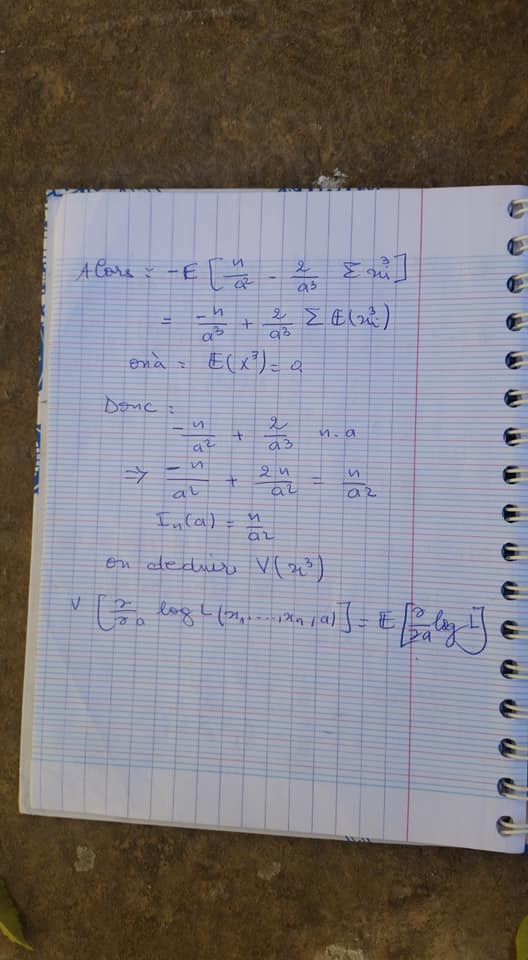 Alors : -E [ n/a² - 2/a³ Σ xi³ ]
= -n/a³ + 2/a³ Σ E(xi³)
on a : E(X³) = a
Donc :
-n/a² + 2/a³ n.a
⇒ -n/a² + 2n/a² = n/a²
In(a) = n/a²
on deduire V(x³)
V [ ∂/∂a log L(x1, ..., xn, a) ] = E [ ∂/∂a log L ]